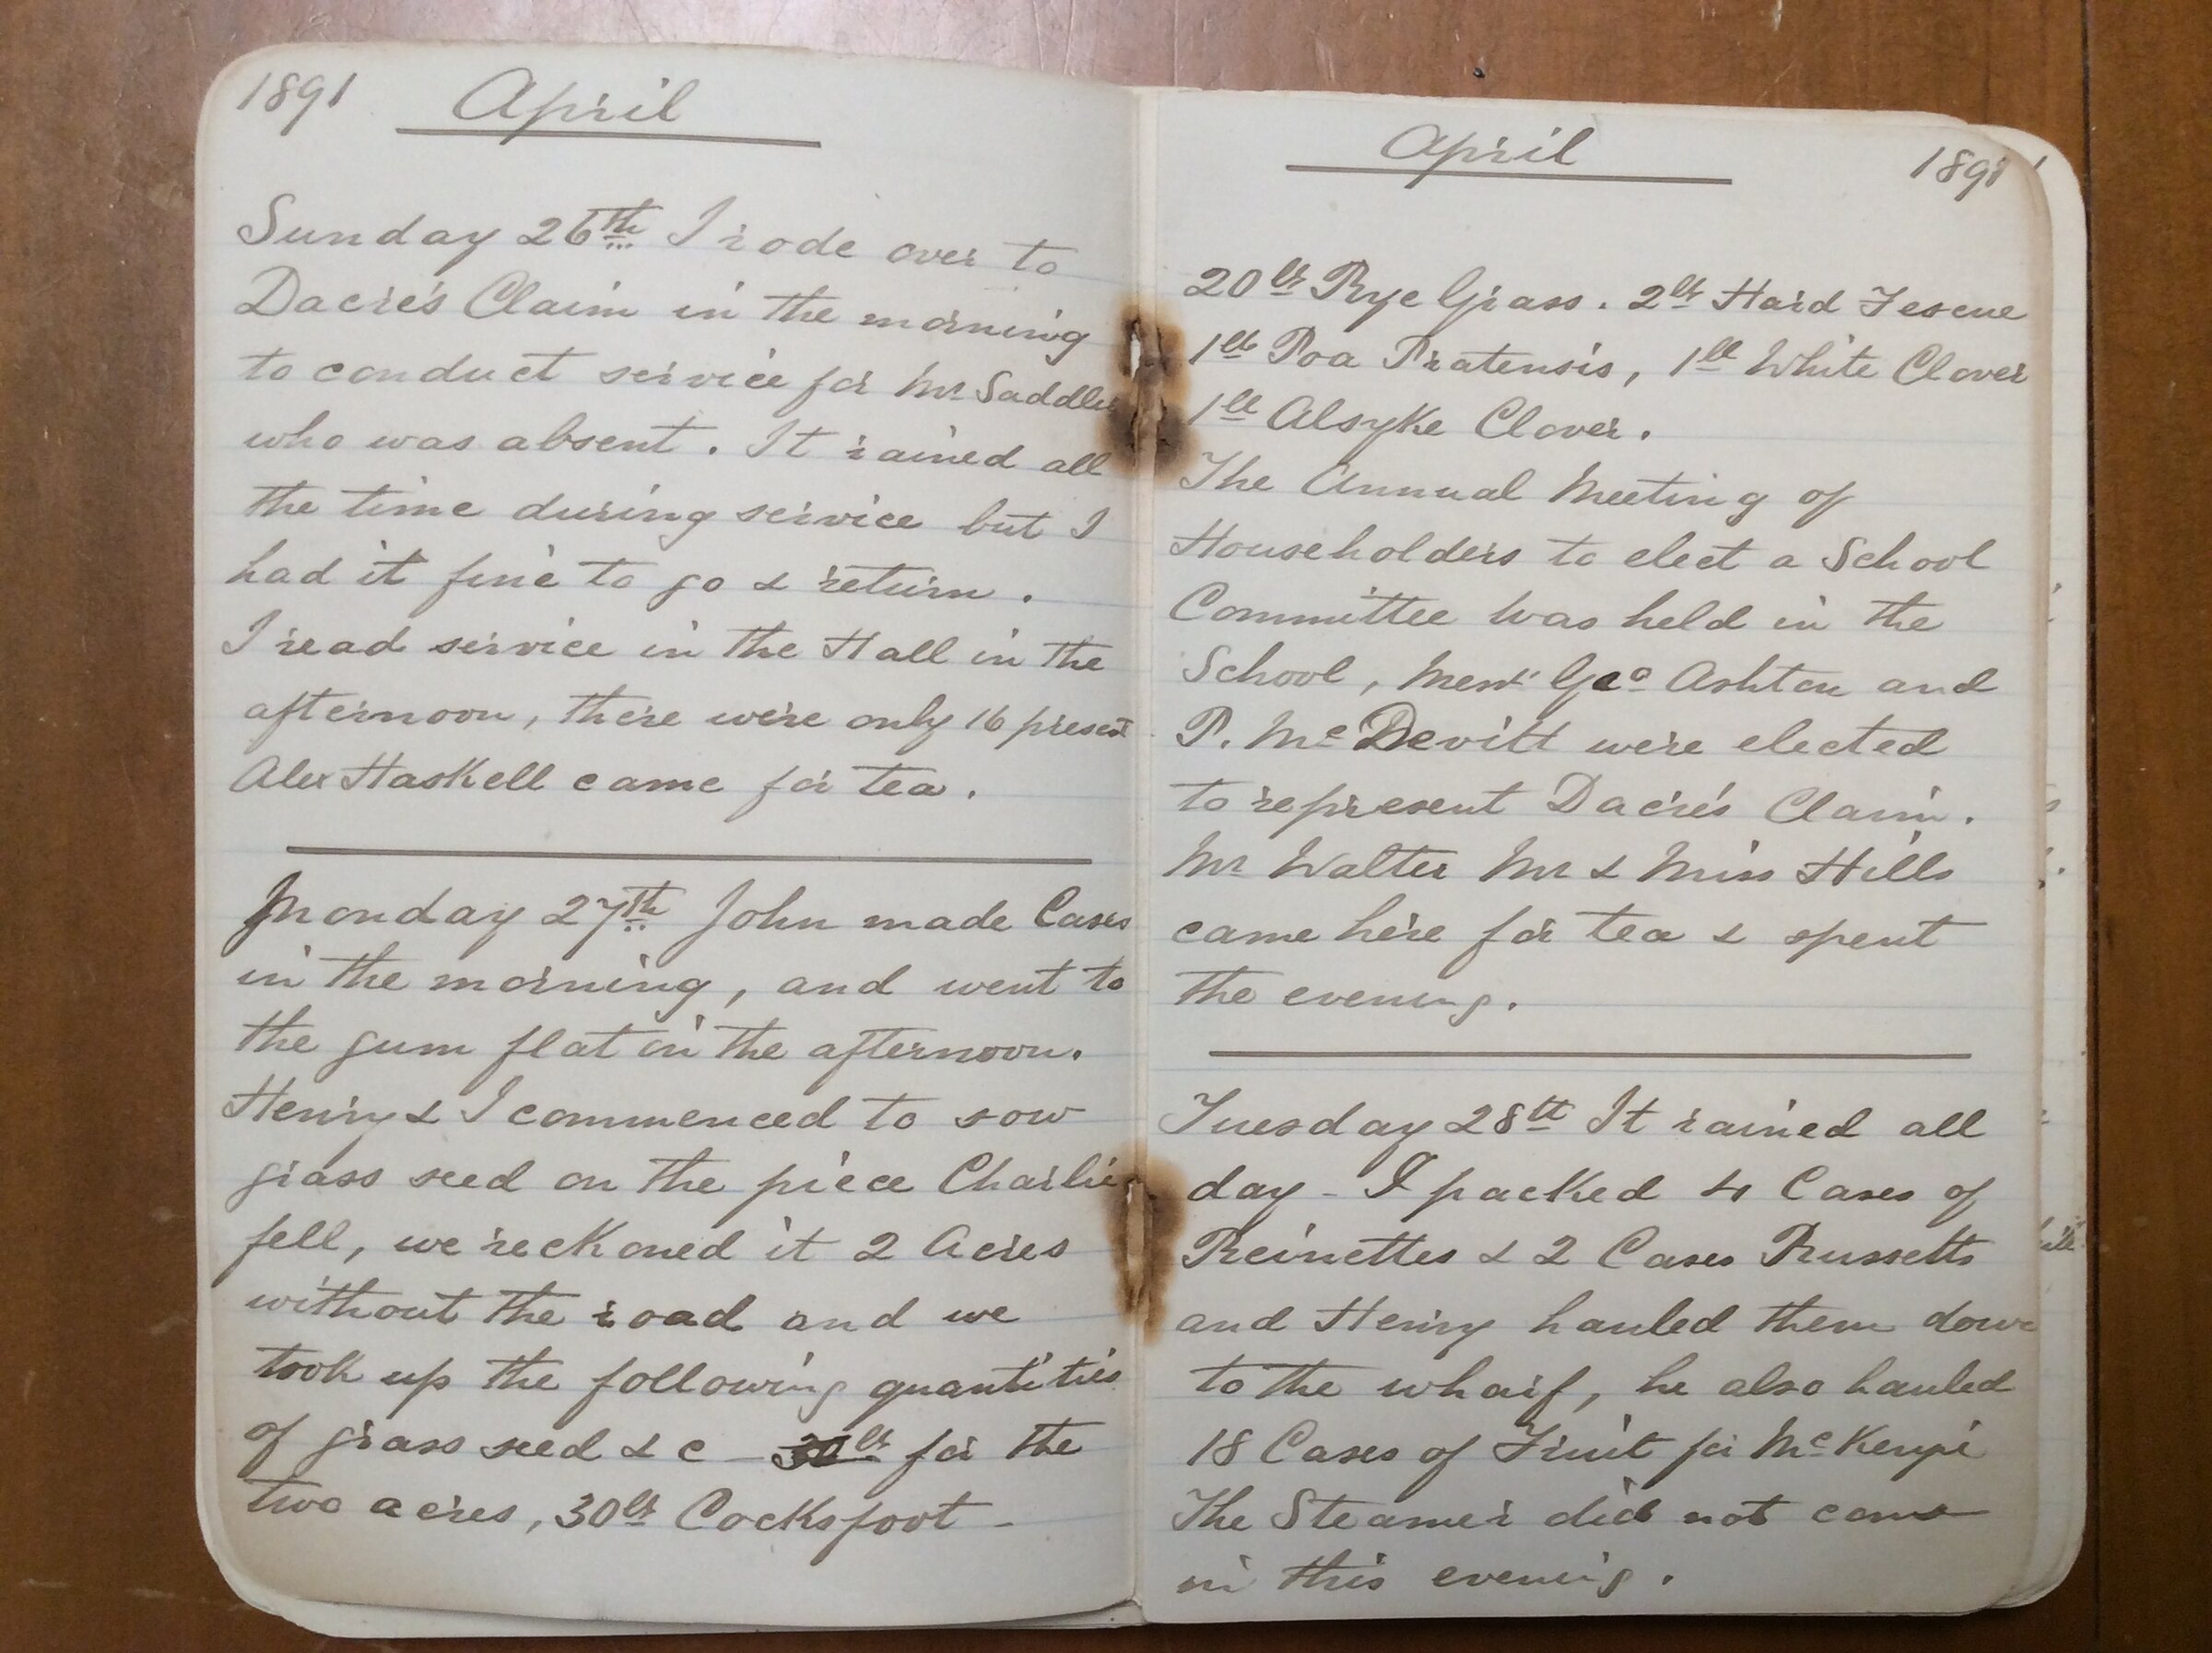 1891 April
Sunday 26th I rode over to
Dacre's Claim in the morning
to conduct service for Mr Saddler
who was absent. It rained all
the time during service but I
had it fine to go & return.
I read service in the Hall in the
afternoon, there were only 16 present
Alex Haskell came for tea.
Monday 27th John made Cases
in the morning, and went to
the gum flat in the afternoon.
Henry & I commenced to sow
grass seed on the piece Charlie
fell, we reckoned it 2 Acres
without the road and we
took up the following quantities
of grass seed & c — lbs for the
two acres, 30lbs Cocksfoot —
April 1891
20lbs Rye Grass. 2lbs Hard Fescue
1lb Poa Pratensis, 1lb White Clover
1lb Alsyke Clover.
The Annual Meeting of
Householders to elect a School
Committee was held in the
School, Messrs Geo Ashton and
P. McDevitt were elected
to represent Dacre's Claim.
Mr Walter Mr & Miss Hills
came here for tea & spent
the evening.
Tuesday 28th It rained all
day - I packed 4 Cases of
Reinettes & 2 Cases Russetts
and Henry hauled them down
to the wharf, he also hauled
18 Cases of Fruit for McKenzie
The Steamer did not come
in this evening.